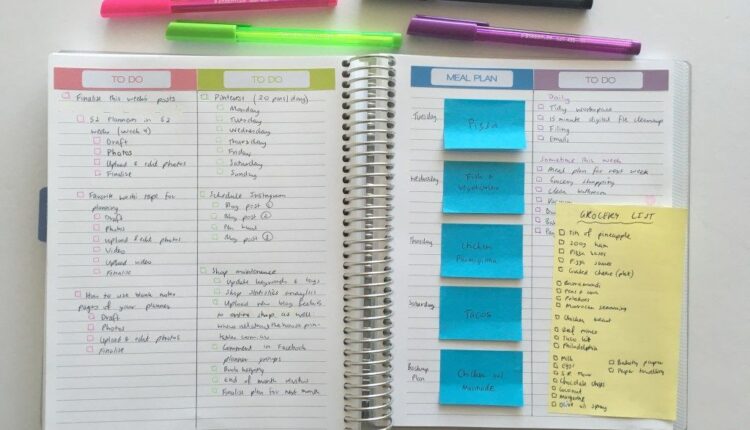 TO DO
Finalise this weeks posts
52 Planners in 52
weeks (week 4)
Draft
Photos
Upload & edit photos
Finalise
Favorite washi tape for
planning
Draft
Photos
Upload & edit photos
Video
Upload video
Finalise
How to use blank notes
pages of your planner
Draft
Photos
Upload & edit photos
Finalise
TO DO
Pinterest (20 pins/day)
Monday
Tuesday
Wednesday
Thursday
Friday
Saturday
Sunday
Schedule Instagram
Blog post 1
Blog post 2
Pen
Blog post
Shop maintenance
Update keywords & tags
Shop statistics analytics
Upload new blog
to online shop as well
Comment in Facebook
planner groups
Book keeping
End of month review
Finalise plan for next month
MEAL PLAN
Tuesday
Pizza
Wednesday
Fish &
vegetables
Thursday
Chicken
Parmigiana
Saturday
Tacos
Backup
Plan
Chicken w/
Marinade
TO DO
Daily
Tidy workspace
15 minute digital file cleanup
Filing
Emails
Sometime this week
Meal plan for next week
Grocery shopping
Clean bathroom
GROCERY LIST
Tin of pineapple
200g ham
Pizza bases
Pizza sauce
Grated cheese
Barramundi
Peas & corn
Potatoes
Moroccan seasoning
Chicken breast
Beef mince
Taco kit
Philadelphia
Milk
Eggs
S.R flour
Chocolate chips
Coconut
Margarine
Olive oil spray
Baking paper
Paper towelling